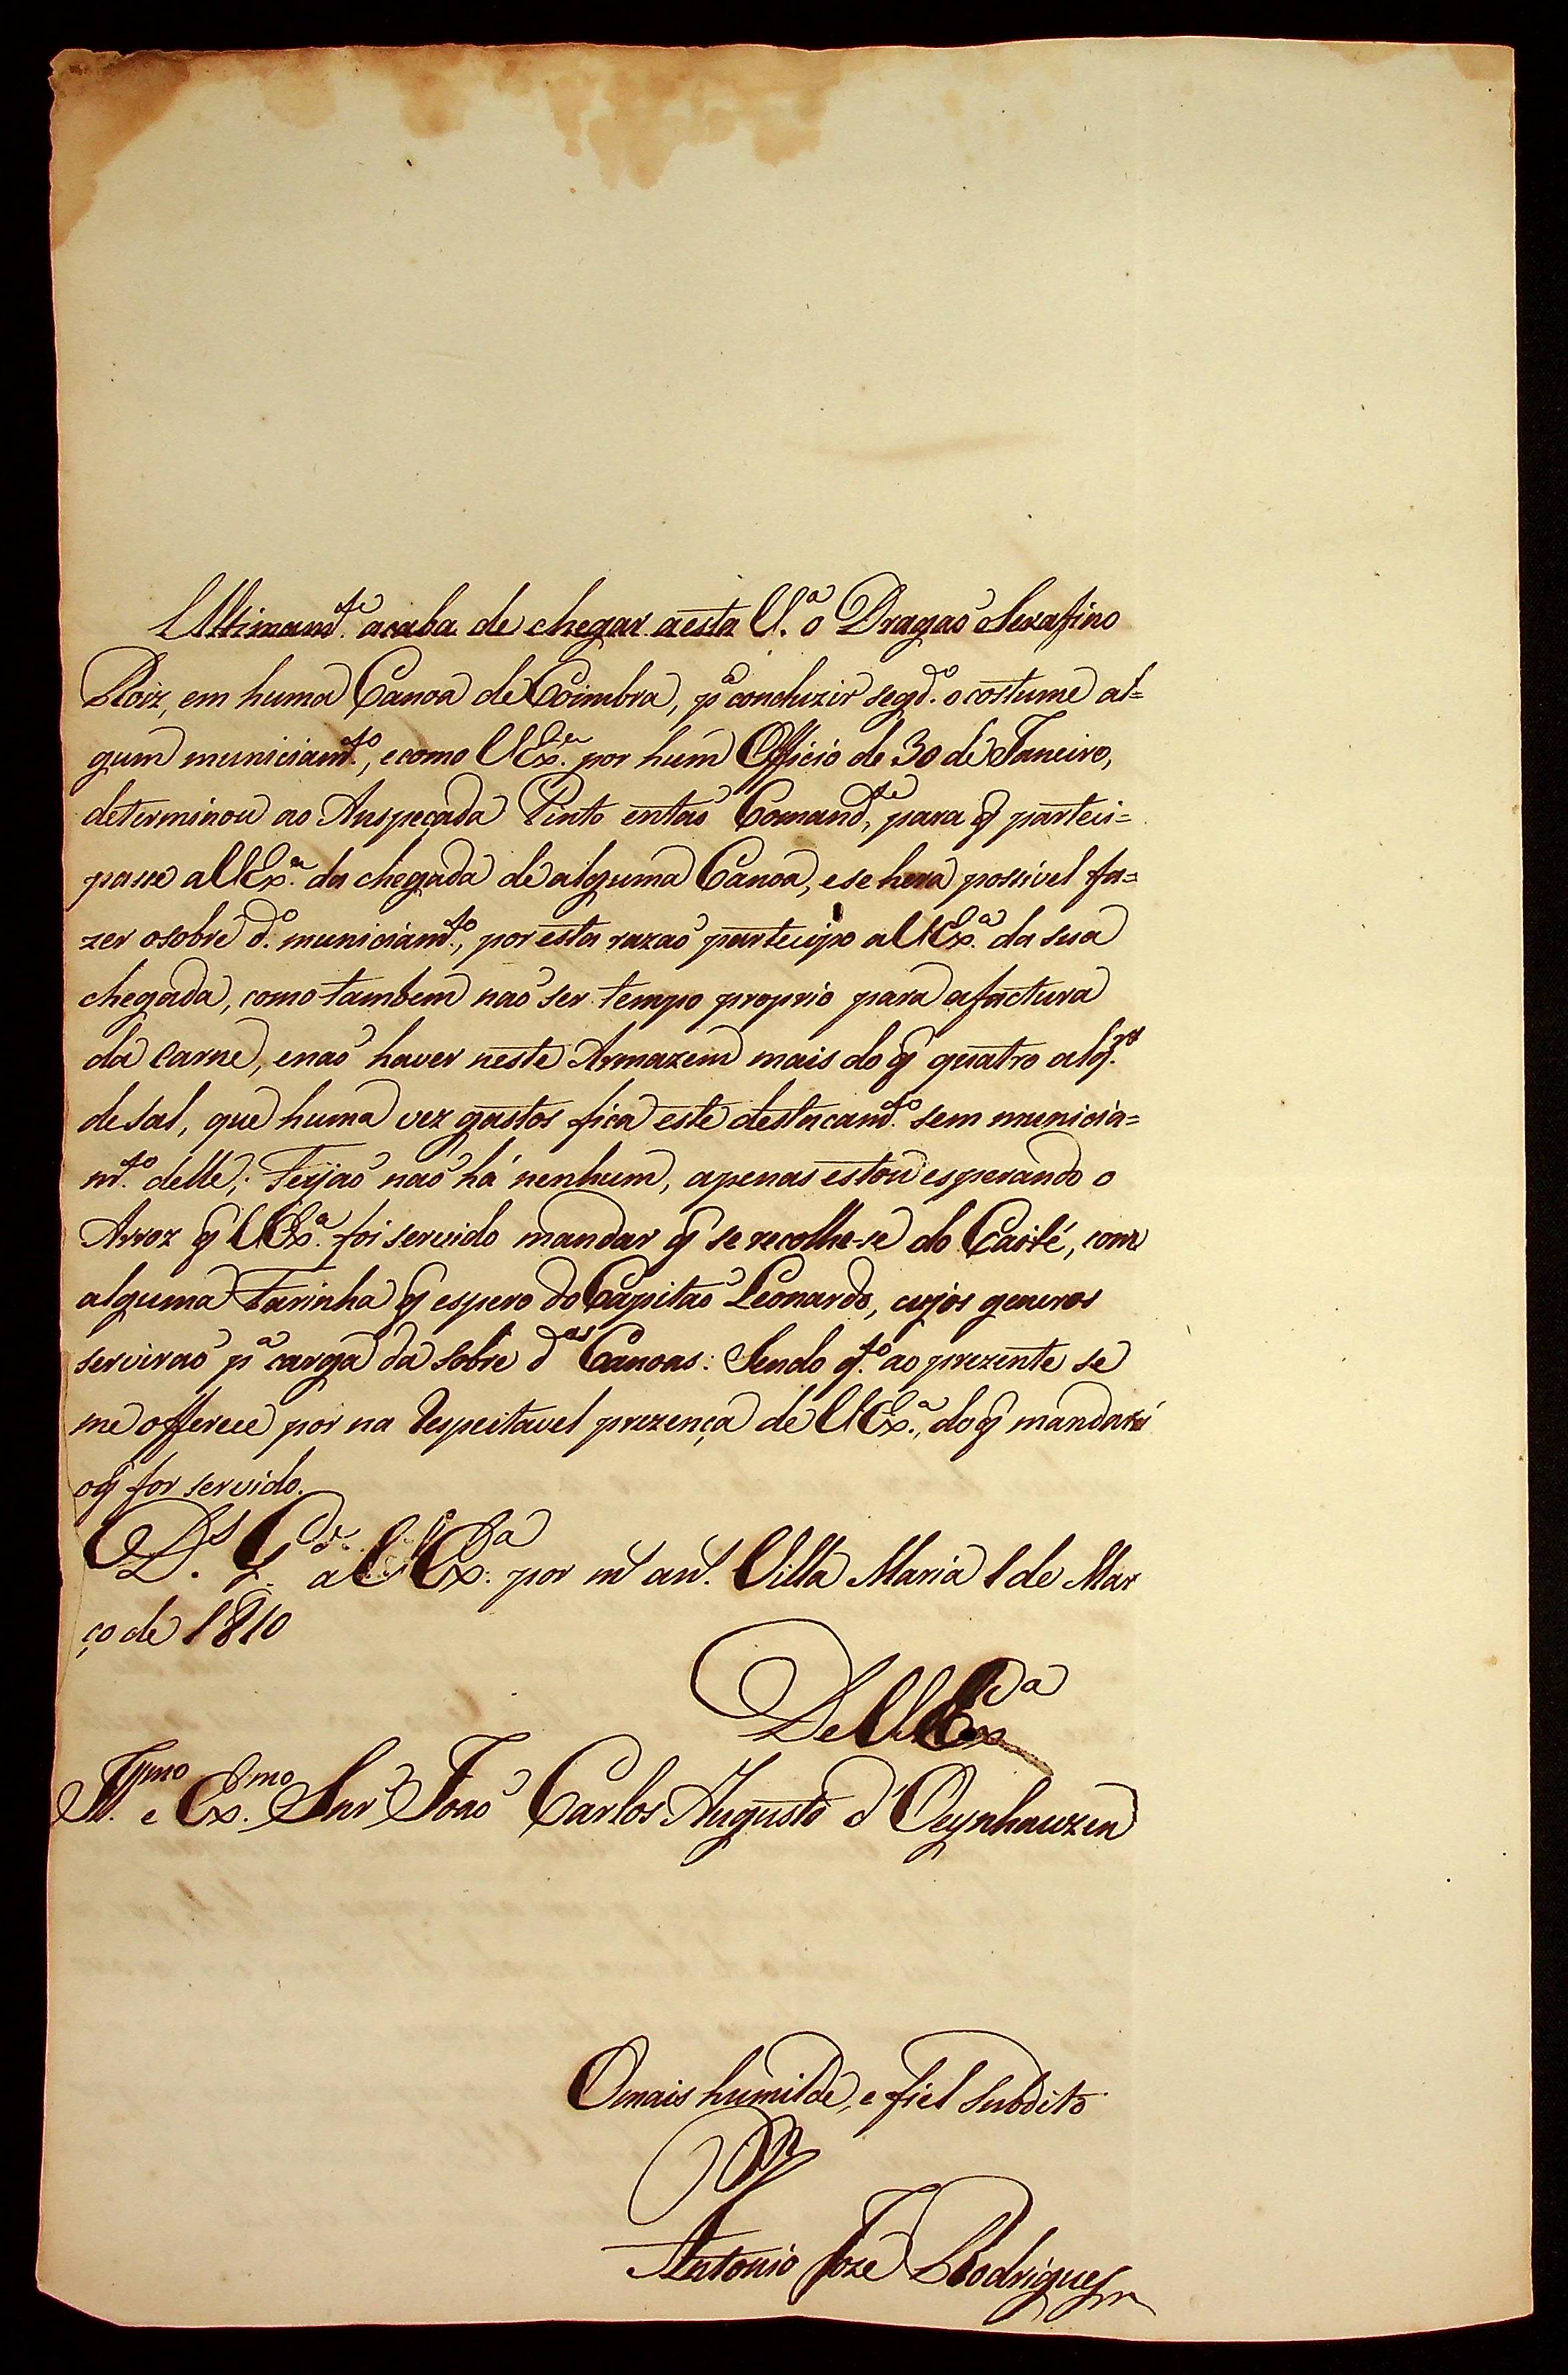 Ultimam.te acaba de chegar aesta V.a o Dragaõ Serafino
Roiz, em huma Canoa de Coimbra, p.a conduzir segd.o o costume al=
gum municiam.to, ecomo VEx.a por hum Officio de 30 de Janeiro,
determinou ao Anspeçada Pinto entaõ Comand.te, para q̃ partici=
passe aVEx.a da chegada de alguma Canoa, ese hera possivel fa=
zer osobre d.o municiam.to, por esta razaõ partecipo aVEx.a da sua
chegada, como tambem naõ ser tempo proprio para afactura
da Carne, enaõ haver neste Armazem mais do q̃ quatro alq.res
de sal, que huma vez gastos fica este destacam.to sem municia=
m.to delle; Feijaõ naõ há nenhum, apenas estou esperando o
Arroz q̃ VEx.a foi servido mandar q̃ se recolhe-se do Caité, com
alguma Farinha q̃ espero do Capitaõ Leonardo, cujos generos
serviraõ p.a carga da sobre d.as Canoas: Sendo q.to ao prezente se
me offerece por na Respeitavel prezença de VEx.a, do q̃ mandará
oq̃ for servido.
D.s G.de aVEx.a por m.s an.s Villa Maria 1 de Mar
ço de 1810
De VEx.a
Ill.mo e Ex.mo Snr. Joaõ Carlos Augusto d'Oeynhauzen
Omais humilde, e fiel Subdito
Antonio Joze Rodrigues